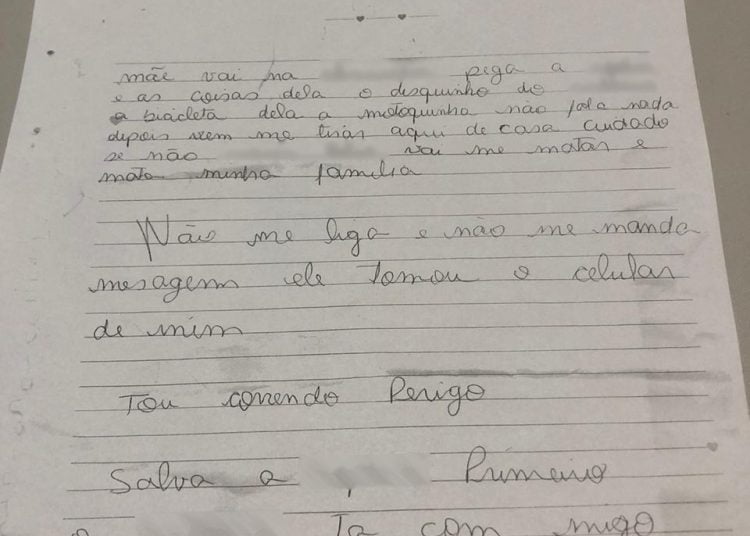 mãe vai na piga a
e as coisas dela o disquinho do
a bicicleta dela a motoquinha não fala nada
depois vem me tirar aqui de casa cuidado
se não vai me matar e
mata minha familia
Não me liga e não me manda
mesagem ele tomou o celular
de mim
Tou correndo Perigo
Salva a Primeiro
Ta com migo